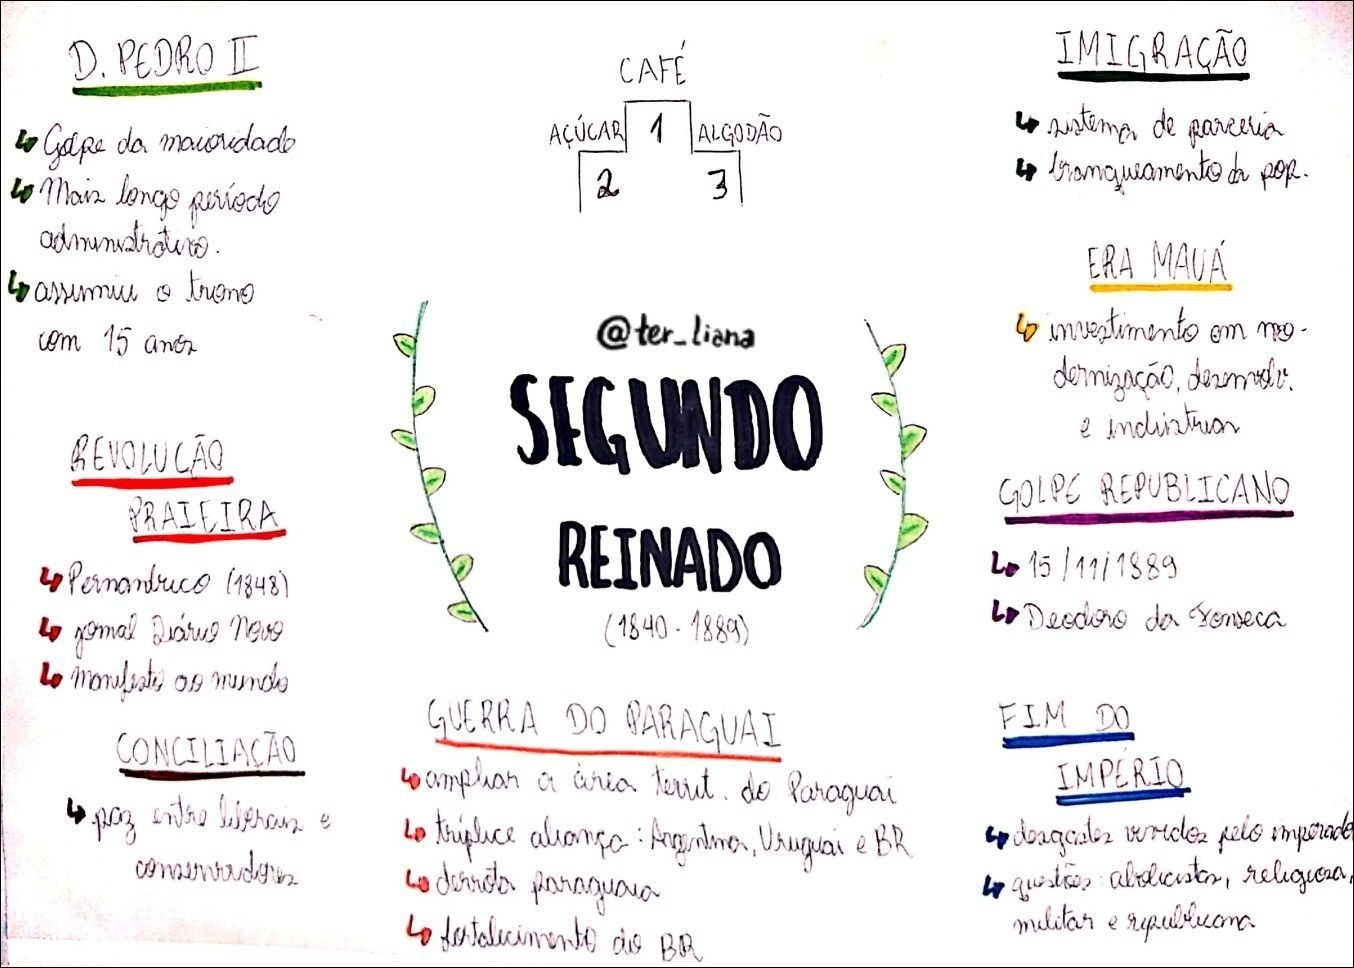 D. PEDRO II
Golpe da maioridade
Mais longo período
administrativo.
assumiu o trono
com 15 anos
REVOLUÇÃO
PRAIEIRA
Pernambuco (1848)
jornal Diário Novo
Manifesto ao mundo
CONCILIAÇÃO
paz entre liberais e
conservadores
CAFÉ
AÇÚCAR 1 ALGODÃO
2 3
@ter_liana
SEGUNDO
REINADO
(1840 - 1889)
GUERRA DO PARAGUAI
ampliar a área territ. do Paraguai
tríplice aliança: Argentina, Uruguai e BR
derrota paraguaia
fortalecimento do BR
IMIGRAÇÃO
sistema de parceria
branqueamento da pop.
ERA MAUÁ
investimento em mo-
dernização, desenvolv.
e indústrias
GOLPE REPUBLICANO
15/11/1889
Deodoro da Fonseca
FIM DO
IMPÉRIO
desgastes vividos pelo imperado
questões: abolicista, religiosa,
militar e republicana